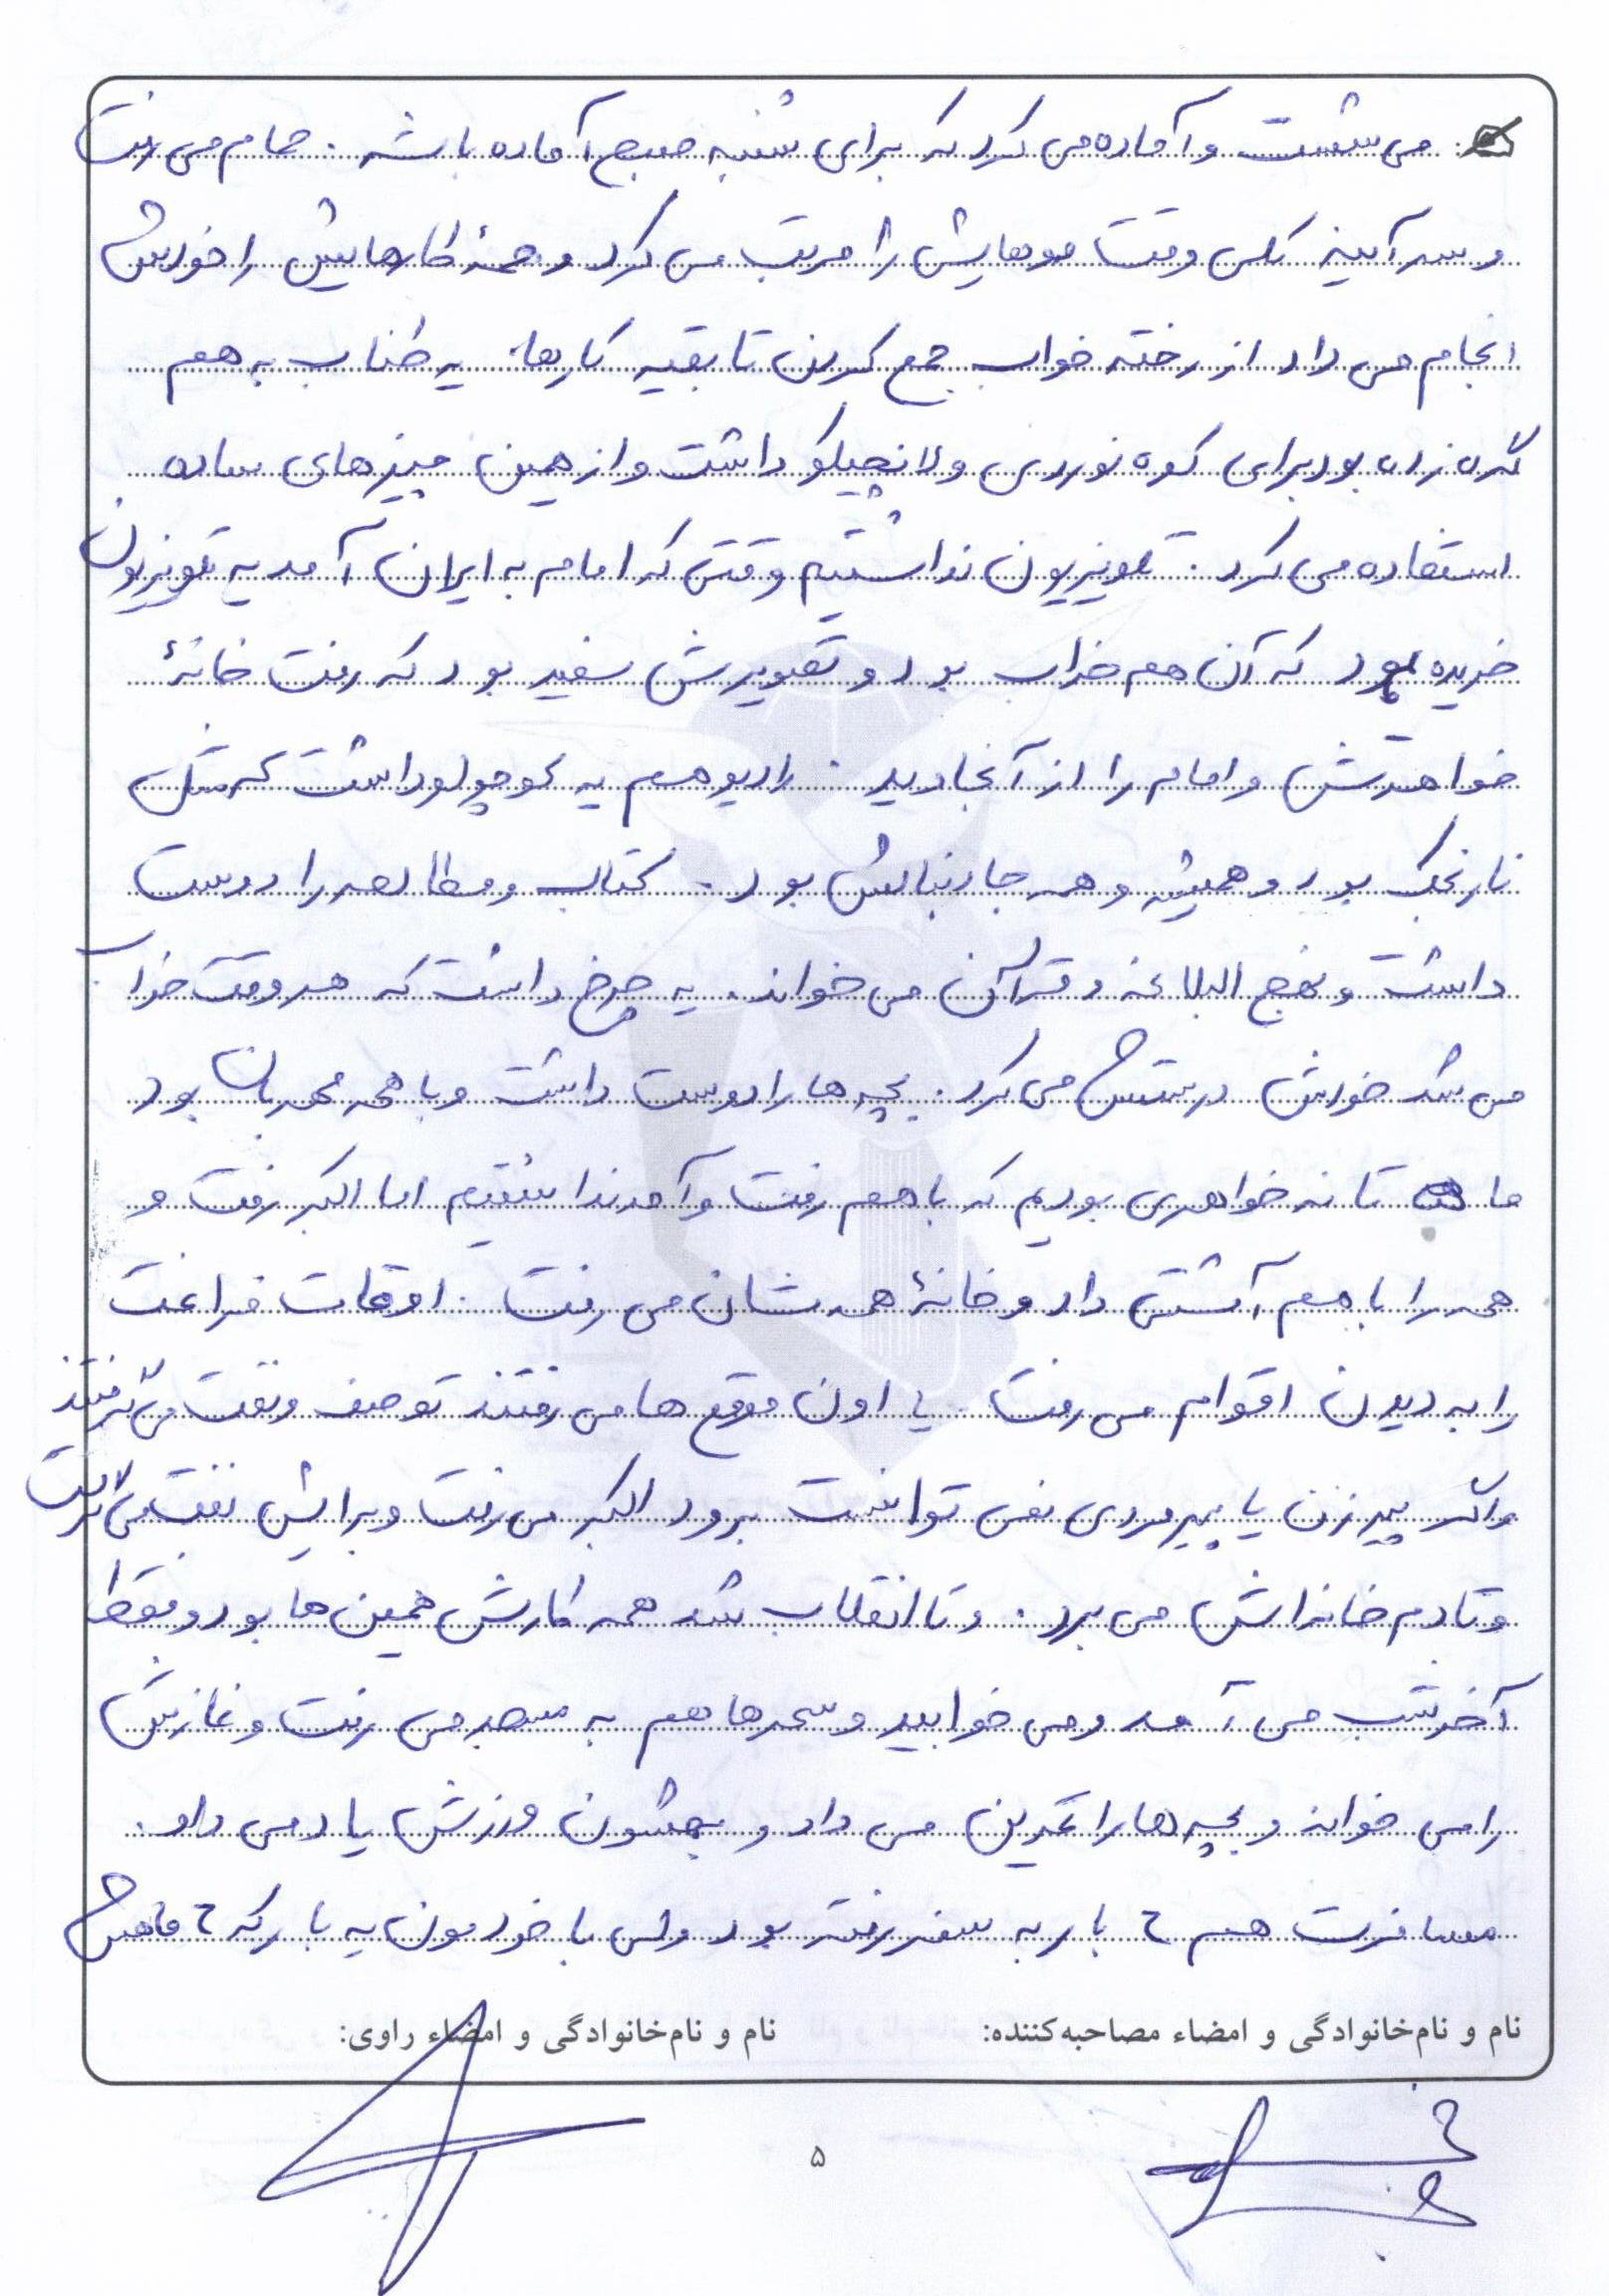 می شست و آماده می کرد که برای شنبه صبح آماده باشه . حمام می رفت
و سر آیینه کلی وقت موهایش را مرتب می کرد و همۀ کارهایش را خودش
انجام می داد از رخته خواب جمع کردن تا بقیه کارها. یه طناب به هم
گره زده بود برای کوه نوردی و لانچیکو داشت و از همین چیزهای ساده
استفاده می کرد . تلویزیون نداشتیم وقتی که امام به ایران آمد یه تلویزیون
خریده بود که آن هم خراب بود و تصویرش سفید بود که رفت خانۀ
خواهرش و امام را از آنجا دید . رادیو هم یه کوچولو داشت که مثل
نارنجک بود و همیشه و هر جا دنبالش بود . کتاب و مطالعه را دوست
داشت و نهج البلاغه و قرآن می خواند. یه چرخ داشت که هر وقت خراب
می شد خودش درستش می کرد . بچه ها را دوست داشت و با همه مهربان بود
ما تا نه خواهری بودیم که با هم رفت و آمد نداشتیم اما اکبر رفت و
همه را با هم آشتی داد و خانۀ همه شان می رفت . اوقات فراغت
را به دیدن اقوام می رفت اون موقع ها می رفتند تو صف و نفت می گرفتند
و اگر پیر زن یا پیر مردی نمی توانست برود اکبر می رفت و برایش نفت می گرفت
و تا دم خانه اش می برد . و تا انقلاب شد همه کارش همین ها بود و فقط
آخر شب می آمد و می خوابید و سحرها هم به مسجد می رفت و نمازش
را می خواند و بچه ها را تمرین می داد و بهشون ورزش یاد می داد .
مسافرت هم ۲ بار به سفر رفته بود ولی با خودمون یه بار که ۲ ماهش
نام و نام‌خانوادگی و امضاء مصاحبه‌کننده:
نام و نام‌خانوادگی و امضاء راوی:
۵